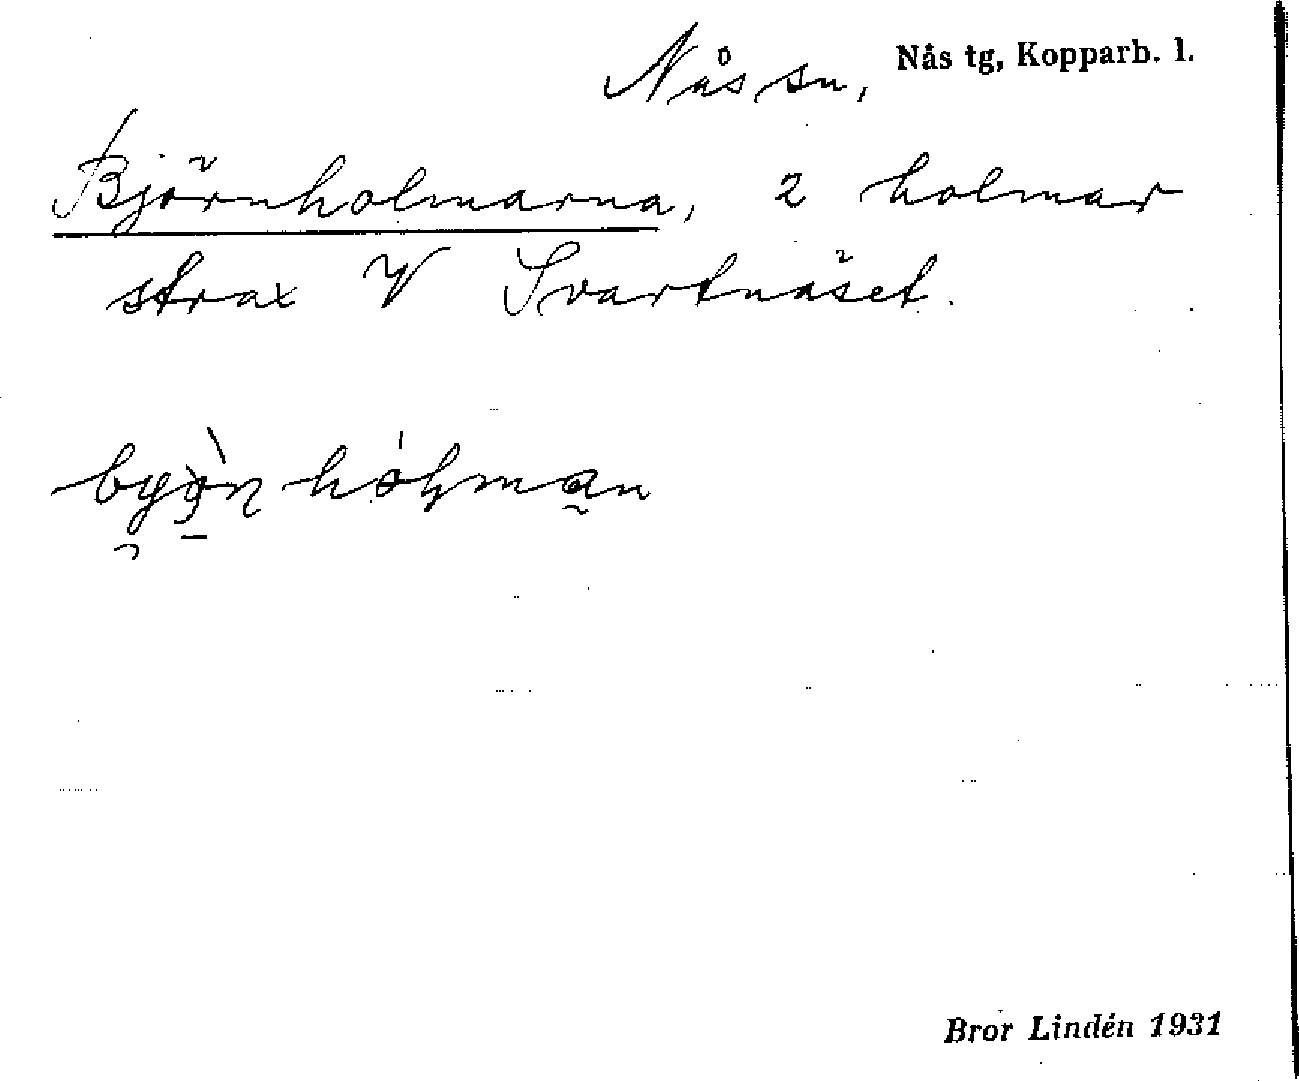 Nås sn, Nås tg, Kopparb. l.
Björnholmarna, 2 holmar
strax V Svartnäset.
Bror Lindén 1931